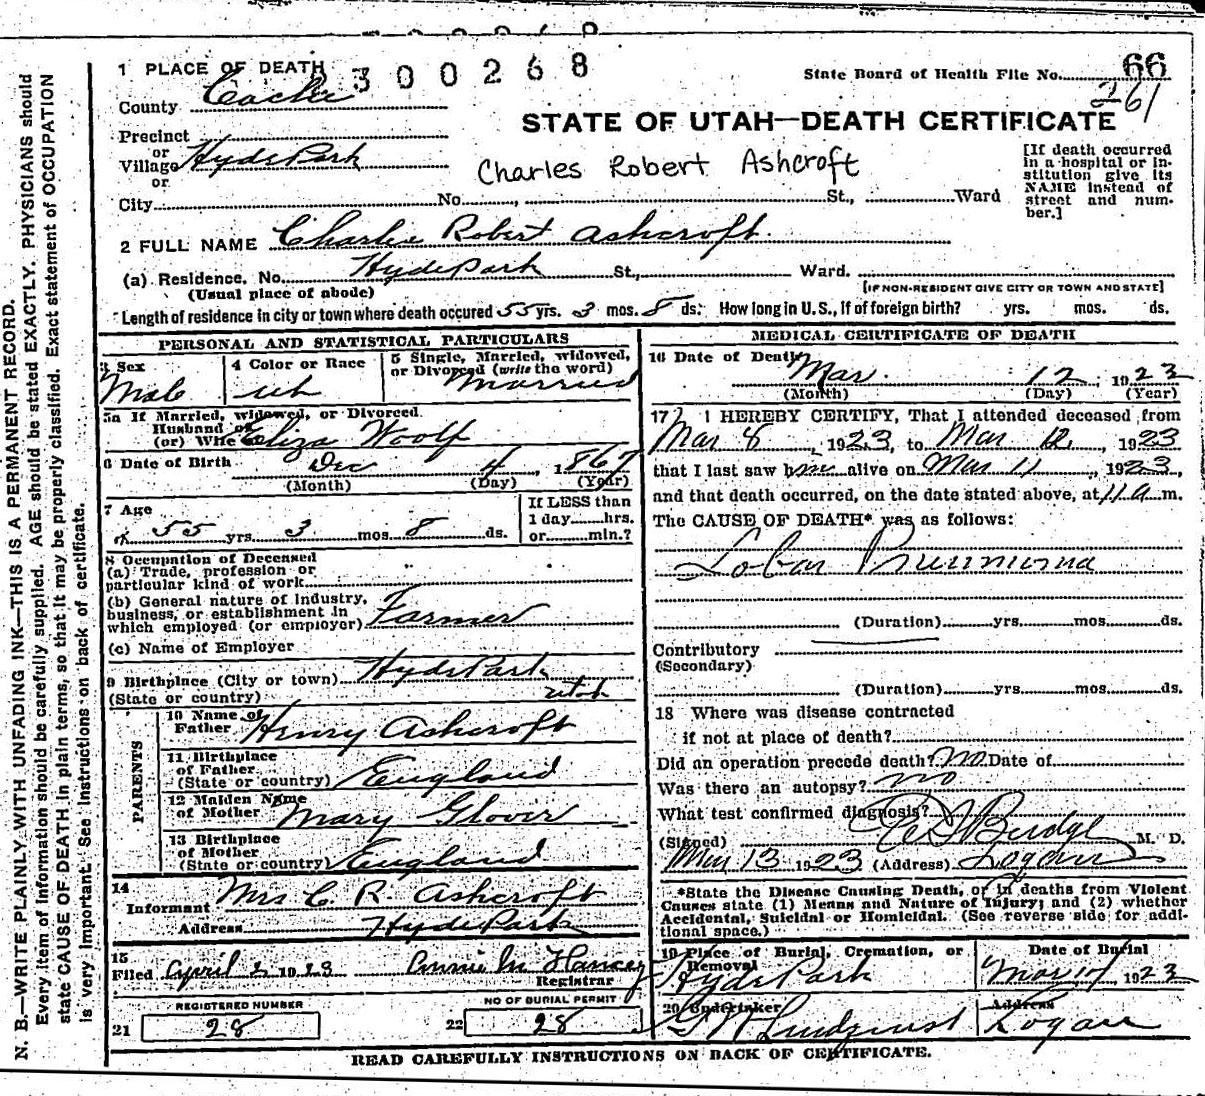 1 PLACE OF DEATH
2300268
State Board of Health File No. 66
261
County Cache
STATE OF UTAH—DEATH CERTIFICATE
Precinct
or
Village Hyde Park
or
Charles Robert Ashcroft
[If death occurred
in a hospital or in-
stitution give its
NAME instead of
street and num-
ber.]
City No. St., Ward
2 FULL NAME Charles Robert Ashcroft
(a) Residence. No. Hyde Park St., Ward.
(Usual place of abode)
[IF NON-RESIDENT GIVE CITY OR TOWN AND STATE]
Length of residence in city or town where death occured 55 yrs. 3 mos. 8 ds. How long in U.S., if of foreign birth? yrs. mos. ds.
PERSONAL AND STATISTICAL PARTICULARS
3 Sex
Male
4 Color or Race
wh
5 Single, Married, widowed,
or Divorced (write the word)
Married
5a If Married, widowed, or Divorced
Husband of
(or) Wife Eliza Woolf
6 Date of Birth Dec 4, 1867
(Month) (Day) (Year)
7 Age
55 yrs. 3 mos. 8 ds.
If LESS than
1 day......hrs.
or......min.?
8 Occupation of Deceased
(a) Trade, profession or
particular kind of work
(b) General nature of Industry,
business, or establishment in
which employed (or employer) Farmer
(c) Name of Employer
9 Birthplace (City or town) Hyde Park
(State or country) Utah
PARENTS
10 Name of
Father Henry Ashcroft
11 Birthplace
of Father
(State or country) England
12 Maiden Name
of Mother Mary Glover
13 Birthplace
of Mother
(State or country) England
14
Informant Mrs C. R. Ashcroft
Address Hyde Park
15
Filed April 2 1923 Annie M Hancey
Registrar
REGISTERED NUMBER
21 28
NO OF BURIAL PERMIT
22 28
MEDICAL CERTIFICATE OF DEATH
16 Date of Death Mar. 12, 1923
(Month) (Day) (Year)
17 I HEREBY CERTIFY, That I attended deceased from
Mar 8, 1923, to Mar 12, 1923
that I last saw him alive on Mar 11, 1923,
and that death occurred, on the date stated above, at 11 a m.
The CAUSE OF DEATH* was as follows:
Lobar Pneumonia
(Duration) yrs. mos. ds.
Contributory
(Secondary)
(Duration) yrs. mos. ds.
18 Where was disease contracted
if not at place of death?
Did an operation precede death? No Date of
Was there an autopsy? no
What test confirmed diagnosis?
(Signed) Budge M. D.
Mar 13 1923 (Address) Logan
*State the Disease Causing Death, or in deaths from Violent
Causes state (1) Means and Nature of Injury; and (2) whether
Accidental, Suicidal or Homicidal. (See reverse side for addi-
tional space.)
19 Place of Burial, Cremation, or
Removal
Hyde Park
Date of Burial
Mar 1923
20 Undertaker
Lundquist
Address
Logan
READ CAREFULLY INSTRUCTIONS ON BACK OF CERTIFICATE.
N. B.—WRITE PLAINLY WITH UNFADING INK—THIS IS A PERMANENT RECORD.
Every item of information should be carefully supplied. AGE should be stated EXACTLY. PHYSICIANS should
state CAUSE OF DEATH in plain terms, so that it may be properly classified. Exact statement of OCCUPATION
is very important. See Instructions on back of certificate.